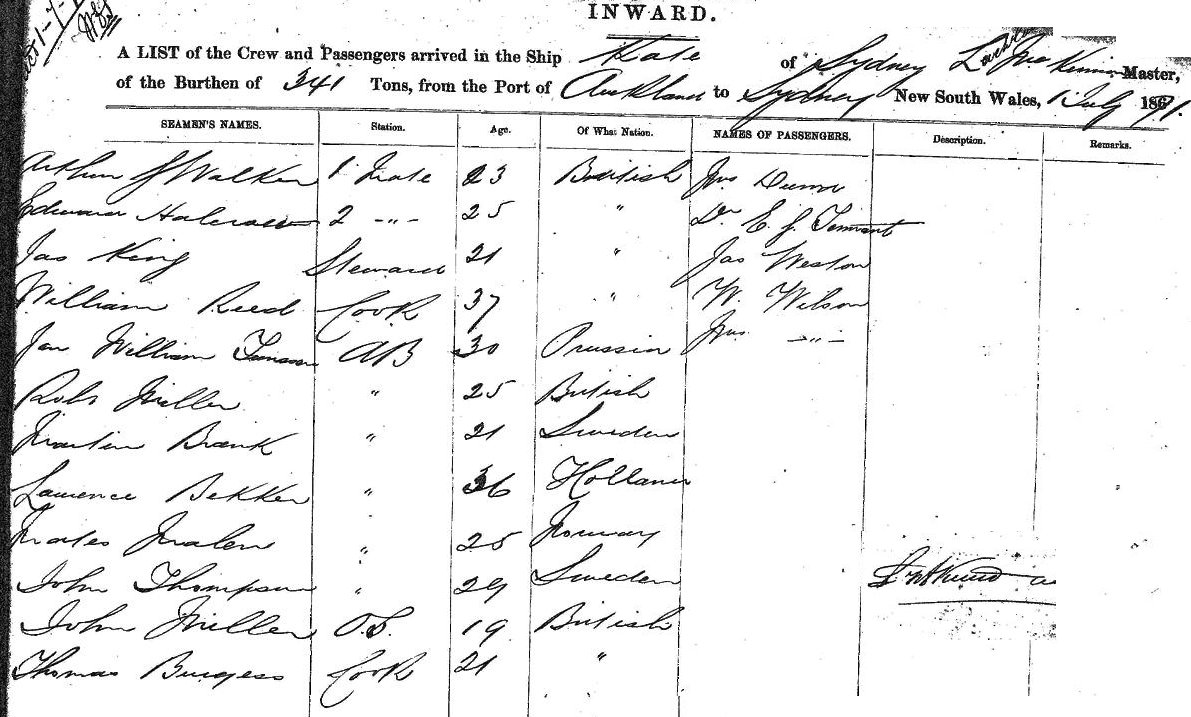 INWARD.
A LIST of the Crew and Passengers arrived in the Ship Kate of Sydney Master,
of the Burthen of 341 Tons, from the Port of Auckland to Sydney New South Wales, 1 July 1871.
SEAMEN'S NAMES. Station. Age. Of What Nation. NAMES OF PASSENGERS. Description. Remarks.
Arthur J Walker 1 Mate 23 British Jno Dunn
Edward 2 -"- 25 " Dr E. J. Tennant
Jas King Steward 21 " Jas Weston
William Reed Cook 37 " W. Wilson
Jan William AB 30 Prussia Jno -"-
Robt Miller " 25 British
Martin Brank " 21 Sweden
Lawrence Bekker " 36 Holland
" 25 Norway
John Thompson " 29 Sweden
John Miller O.S. 19 British
Thomas Burgess Cook 21 "